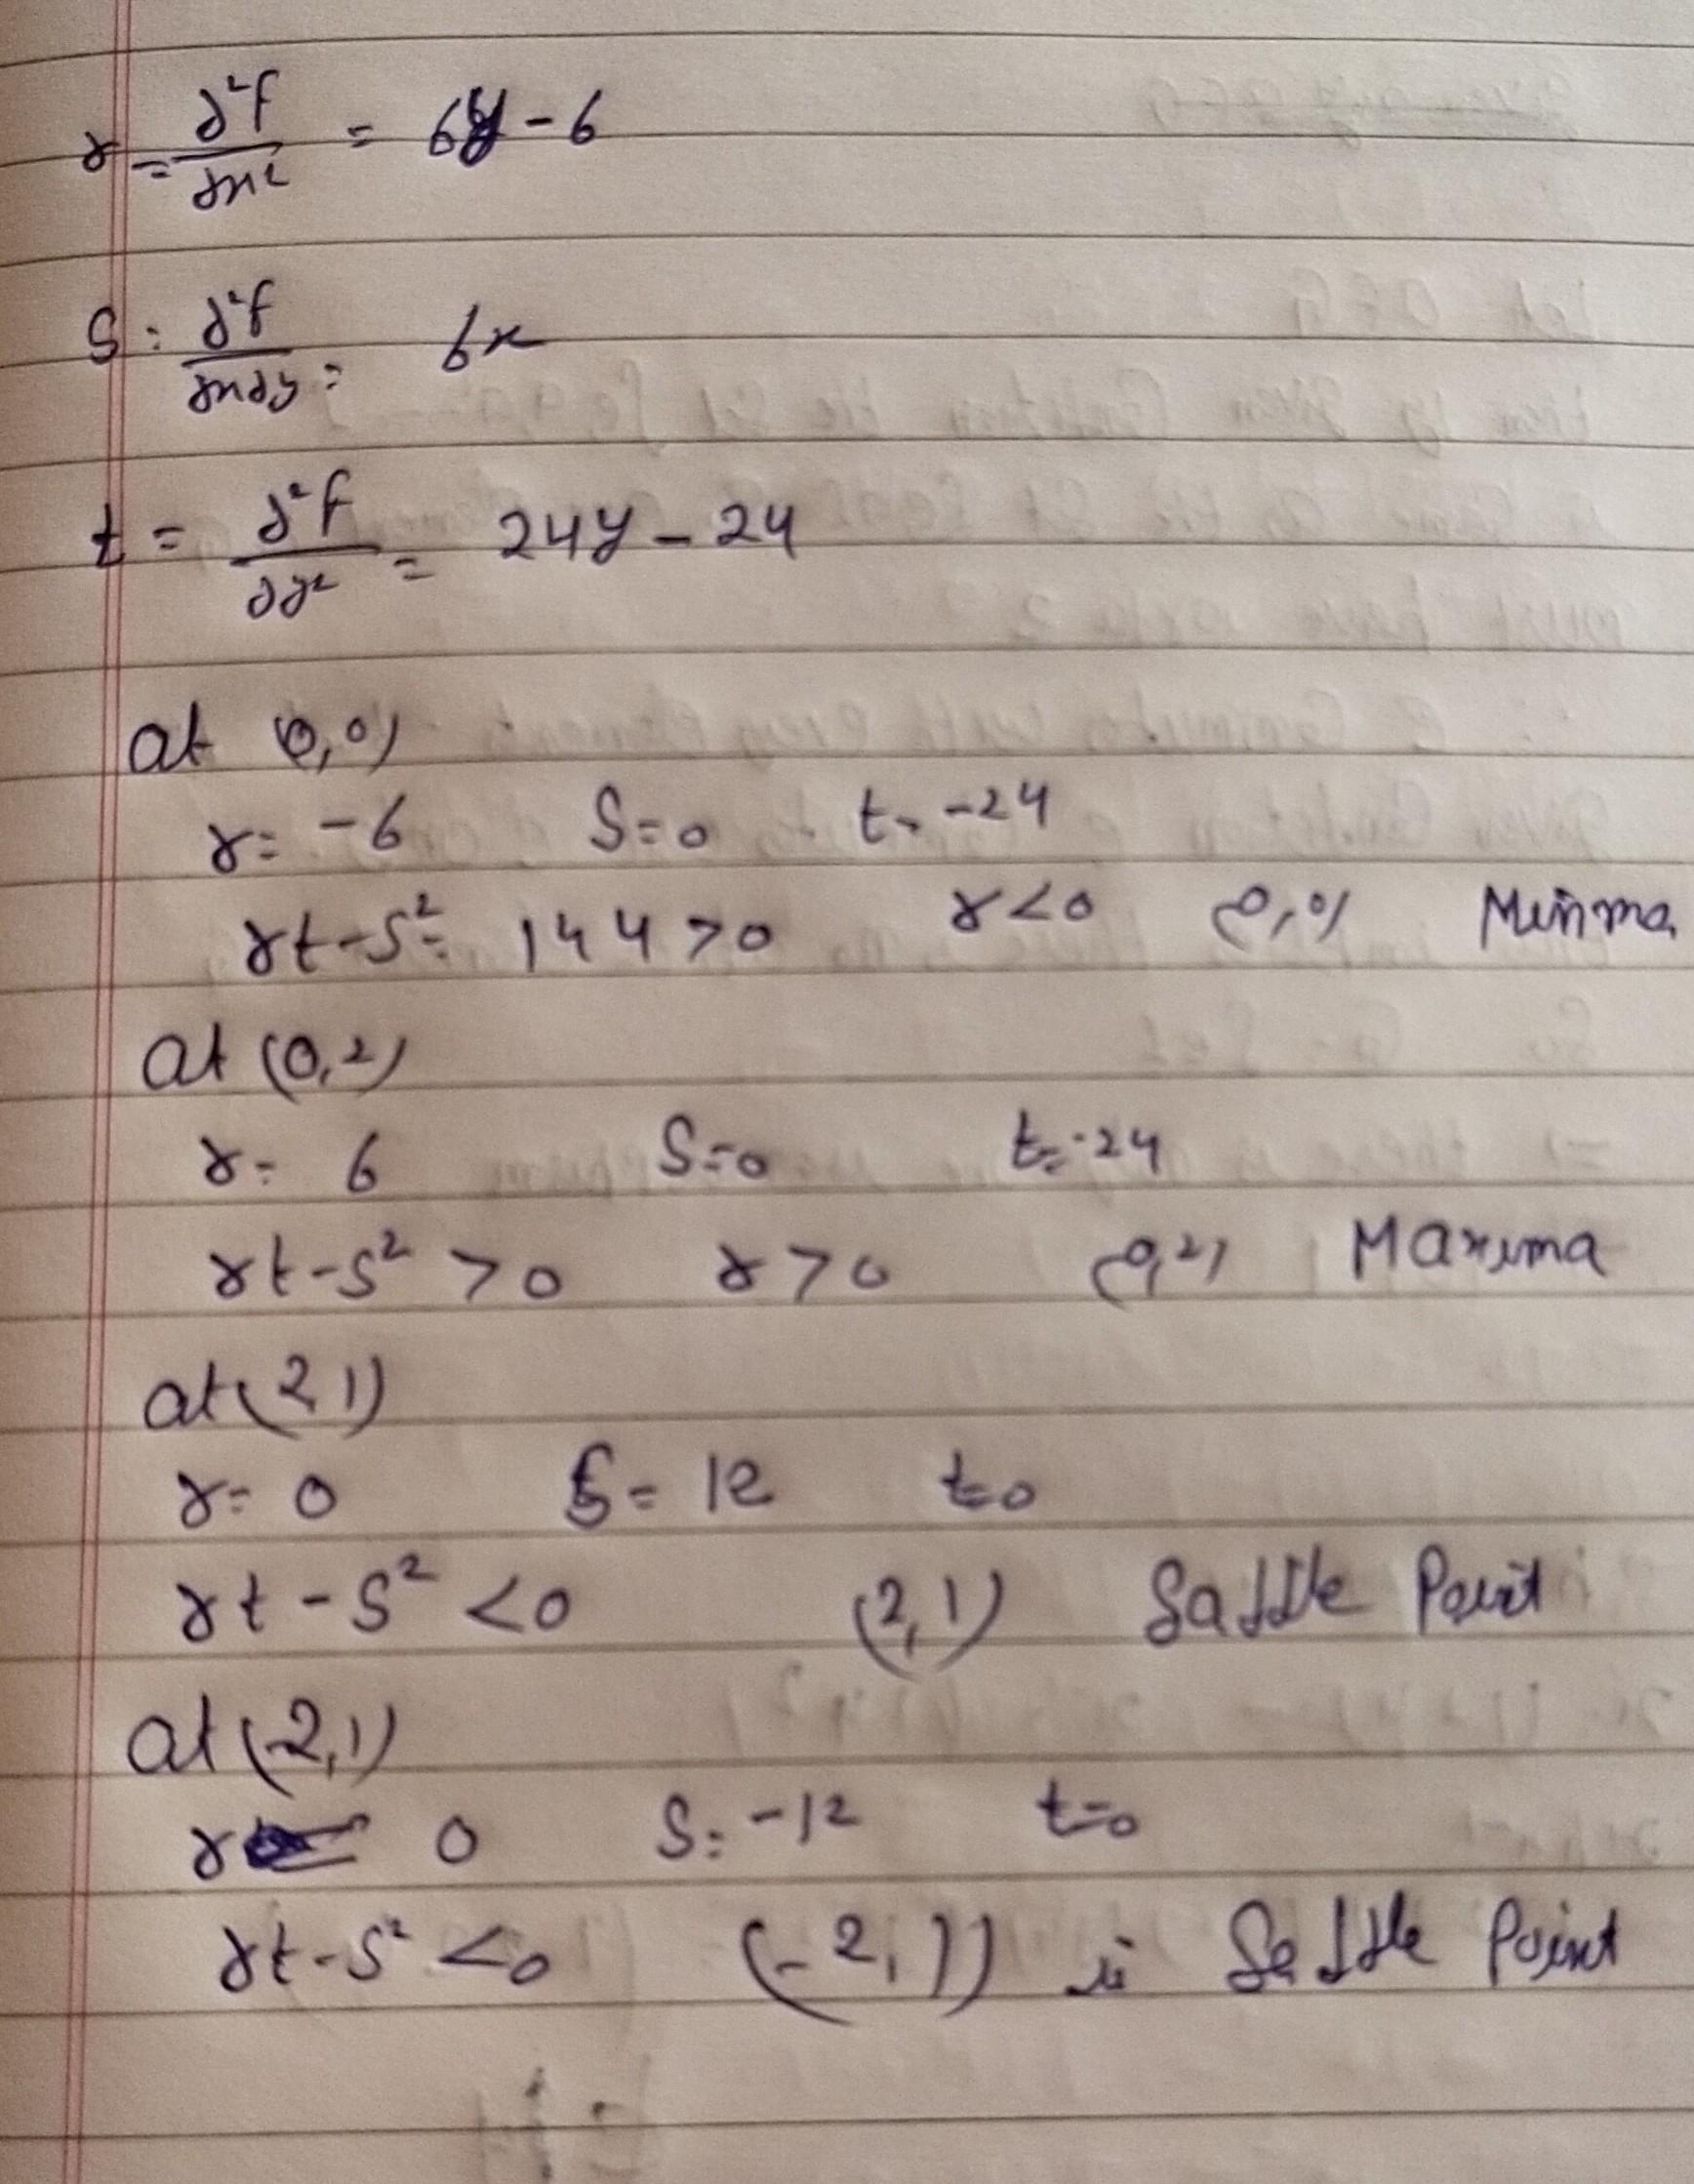 r = ∂²f/∂x² = 6y - 6
S : ∂²f/∂x∂y = 6x
t = ∂²f/∂y² = 24y - 24
at (0,0)
r = -6 S = 0 t = -24
rt - S² = 144 > 0 r < 0 (0,0) Minima
at (0,2)
r = 6 S = 0 t = -24
rt - S² > 0 r > 0 (0,2) Maxima
at (2 1)
r = 0 S = 12 t = 0
rt - S² < 0 (2,1) Saddle Point
at (-2,1)
r = 0 S = -12 t = 0
rt - S² < 0 (-2,1) is Saddle Point